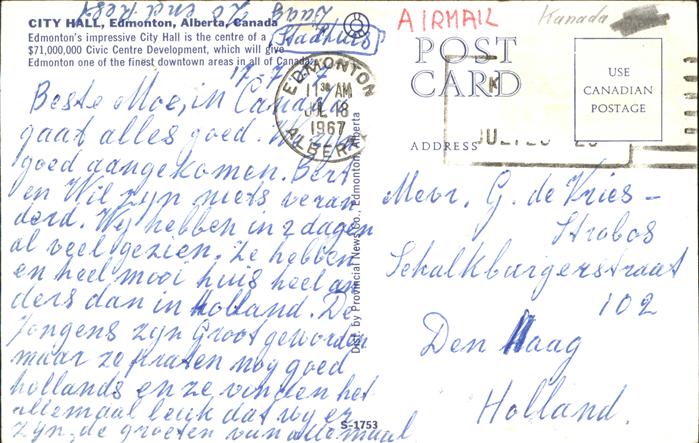 CITY HALL, Edmonton, Alberta, Canada
Edmonton's impressive City Hall is the centre of a
$71,000,000 Civic Centre Development, which will give
Edmonton one of the finest downtown areas in all of Canada.
(Stadhuis)
17-7-67
Beste Moe, in Canada
gaat alles goed. Wij zijn
goed aangekomen. Bert
en Wil zijn niets veran
derd. Wij hebben in 2 dagen
al veel gezien. Ze hebben
en heel mooi huis heel an
ders dan in holland. De
jongens zijn groot geworden
maar ze praten nog goed
hollands en ze vinden het
allemaal leuk dat wij er
zijn, de groeten van allemaal
Daag
EDMONTON
11 30 AM
JUL 18
1967
ALBERTA
Dist. by Provincial News Co., Edmonton, Alberta
S-1753
AIRMAIL
Kanada
POST
CARD
ADDRESS
USE
CANADIAN
POSTAGE
Mevr. G. de Vries -
Strobos
Schalkburgerstraat
102
Den Haag
Holland.